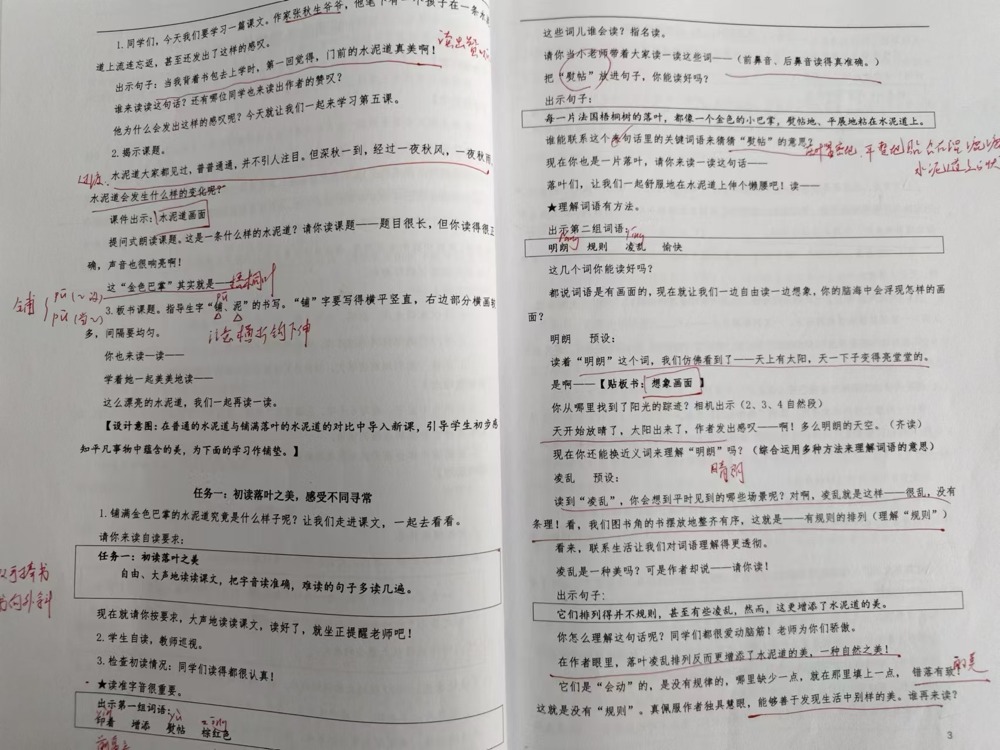 1.同学们，今天我们要学习一篇课文。作家张秋生爷爷，他笔下有一个孩子在一条水
道上流连忘返，甚至还发出了这样的感叹。
出示句子：当我背着书包去上学时，第一回觉得，门前的水泥道真美啊！
读出赞
谁来读读这句话？还有哪位同学也来读出作者的赞叹？
他为什么会发出这样的感叹呢？今天就让我们一起来学习第五课。
2.揭示课题。
过渡
水泥道大家都见过，普普通通，并不引人注目。但深秋一到，经过一夜秋风，一夜秋雨，
水泥道会发生什么样的变化呢？
课件出示：水泥道画面
提问式朗读课题。这是一条什么样的水泥道？请你读课题——题目很长，但你读得很正
确，声音也很响亮啊！
这“金色巴掌”其实就是——梧桐叶
铺
pū
3.板书课题。指导生字“铺、泥”的书写。“铺”字要写得横平竖直，右边部分横画较
多，间隔要均匀。
注意横折钩下伸
你也来读一读——
学着她一起美美地读——
这么漂亮的水泥道，我们一起再读一读。
【设计意图：在普通的水泥道与铺满落叶的水泥道的对比中导入新课，引导学生初步感
知平凡事物中蕴含的美，为下面的学习作铺垫。】
任务一：初读落叶之美，感受不同寻常
1.铺满金色巴掌的水泥道究竟是什么样子呢？让我们走进课文，一起去看看。
请你来读自读要求：
任务一：初读落叶之美
自由、大声地读课文，把字音读准确，难读的句子多读几遍。
现在就请你按要求，大声地读读课文，读好了，就坐正提醒老师吧！
2.学生自读，教师巡视。
3.检查初读情况：同学们读得都很认真！
★读准字音很重要。
出示第一组词语：
印着 增添 熨帖 棕红色
这些词儿谁会读？指名读。
请你当小老师带着大家读一读这些词——（前鼻音、后鼻音读得真准确。）
把“熨帖”放进句子，你能读好吗？
出示句子：
每一片法国梧桐树的落叶，都像一个金色的小巴掌，熨帖地、平展地粘在水泥道上。
谁能联系这个句话里的关键词语来猜猜“熨帖”的意思？
现在你也是一片落叶，请你来读一读这句话——
落叶们，让我们一起舒服地在水泥道上伸个懒腰吧！读——
★理解词语有方法。
出示第二组词语：
明朗 规则 凌乱 愉快
这几个词你能读好吗？
都说词语是有画面的，现在就让我们一边自由读一边想象，你的脑海中会浮现怎样的画
面？
明朗 预设：
读着“明朗”这个词，我们仿佛看到了——天上有太阳，天一下子变得亮堂堂的。
是啊——【贴板书：想象画面】
你从哪里找到了阳光的踪迹？相机出示（2、3、4自然段）
天开始放晴了，太阳出来了，作者发出感叹——啊！多么明朗的天空。（齐读）
现在你还能换近义词来理解“明朗”吗？（综合运用多种方法来理解词语的意思）
晴朗
凌乱 预设：
读到“凌乱”，你会想到平时见到的哪些场景呢？对啊，凌乱就是这样——很乱，没有
条理！看，我们图书角的书摆放地整齐有序，这就是——有规则的排列（理解“规则”）
看来，联系生活让我们对词语理解得更透彻。
凌乱是一种美吗？可是作者却说——请你读！
出示句子：
它们排列得并不规则，甚至有些凌乱，然而，这更增添了水泥道的美。
你怎么理解这句话呢？同学们都很爱动脑筋！老师为你们骄傲。
在作者眼里，落叶凌乱排列反而更增添了水泥道的美，一种自然之美！
它们是“会动”的，是没有规律的，哪里缺少一点，就在那里填上一点，错落有致！
这就是没有“规则”。真佩服作者独具慧眼，能够善于发现生活中别样的美。谁再来读？
3